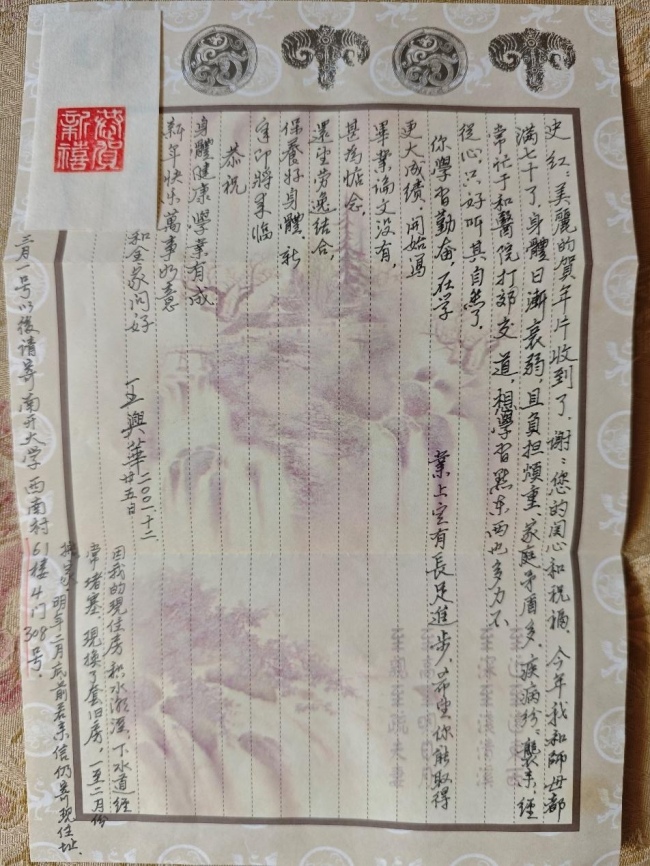 史红：美麗的賀年片收到了.谢：您的関心和祝福.今年我和師母都
满七十了.身體日漸衰弱,且負担煩重、家庭矛盾多、疾病纷：襲来,經
常忙于和醫院打郊交道,想學習點东西也多力不
從心.只好听其自然了.
你學習勤奋,在学業上定有長足進步,希望你能取得
更大成績,開始寫
畢業論文没有,
甚為惦念,
還望劳逸結合,
保養好身體.新
年即將来临
恭祝
身體健康 學業有成
新年快乐萬事如意
和全家问好
王興華 二〇〇一.十二.
廿五日
因我的現住房积水潮溼、下水道經
常堵塞,現换了套旧房,一至二月份
搬家.明年二月底前若来信仍寄現住址.
三月一号以後请寄南开大学西南村61楼4门308号.
恭賀
新禧